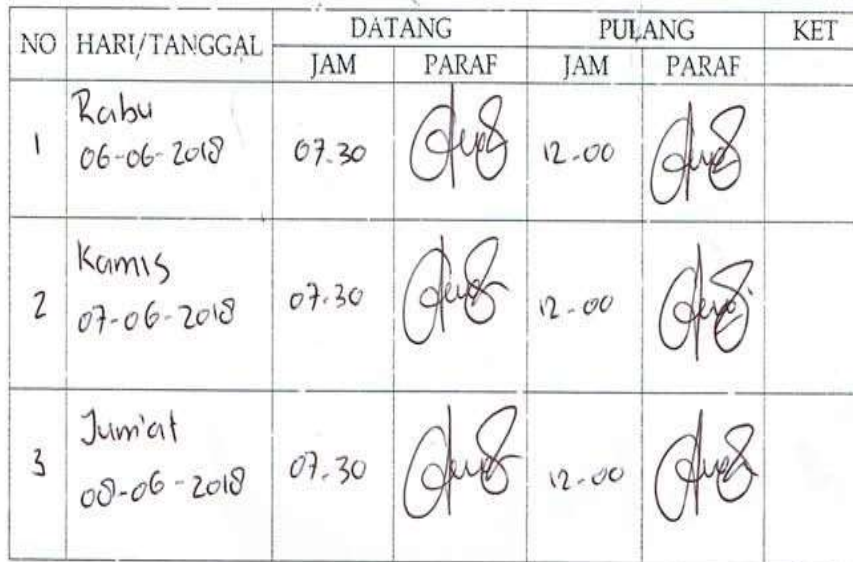 NO HARI/TANGGAL DATANG PULANG KET
JAM PARAF JAM PARAF
1 Rabu
06-06-2018 07.30 12-00
2 Kamis
07-06-2018 07.30 12-00
3 Jum'at
08-06-2018 07.30 12-00